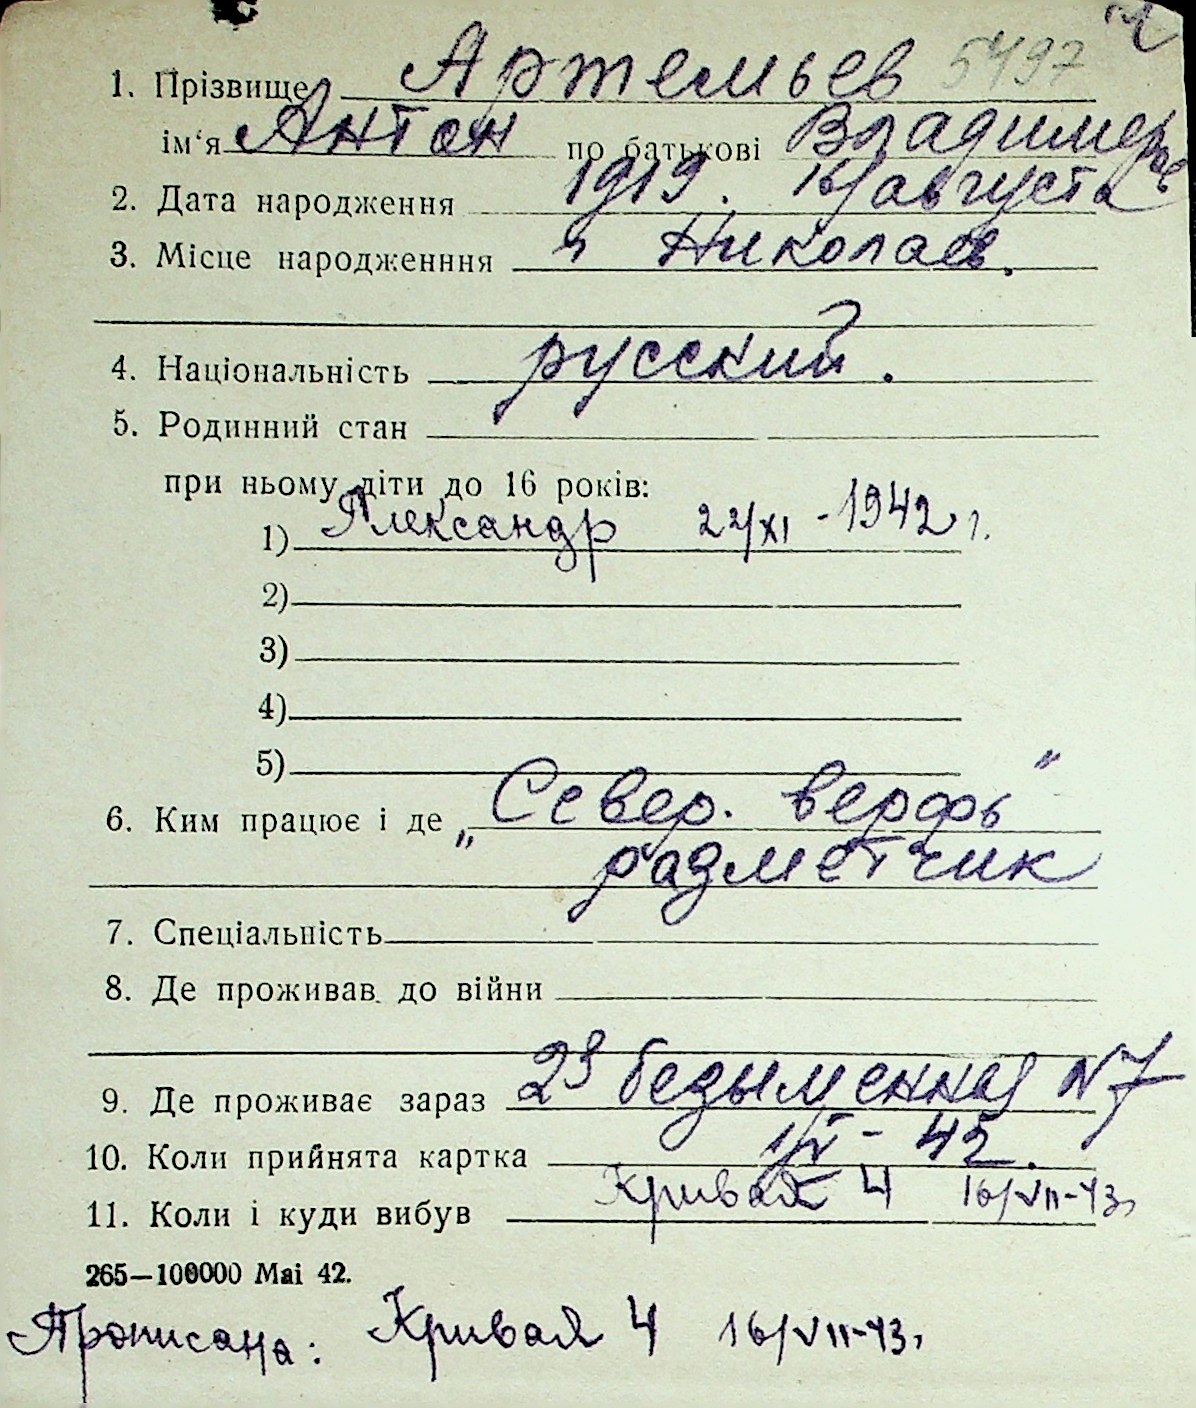 1. Прізвище Артемьев 5497
ім'я Антон по батькові Владимер
2. Дата народження 1919. 16/августа
3. Місце народженння г Николаев.
4. Національність русский.
5. Родинний стан
при ньому діти до 16 років:
1) Александр 22/XI - 1942 г.
2)
3)
4)
5)
6. Ким працює і де „Север. верфь"
разметчик
7. Спеціальність
8. Де проживав до війни
9. Де проживає зараз 2я безыменная N7
10. Коли прийнята картка 42.
11. Коли і куди вибув Кривая 4 16/VII-43.
265—100000 Mai 42.
Прописана: Кривая 4 16/VII-43.